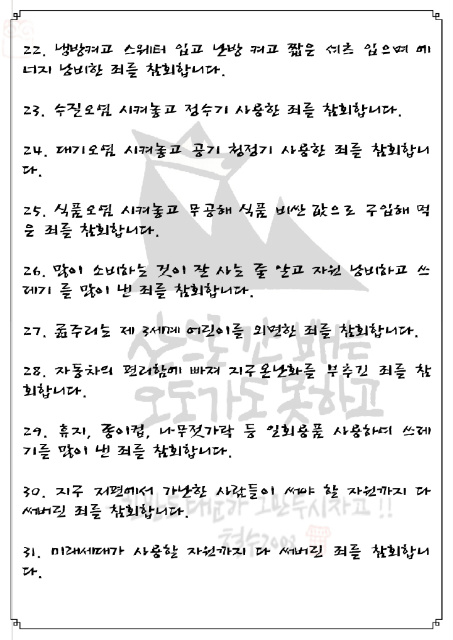 22. 냉방켜고 스웨터 입고 난방 켜고 짧은 셔츠 입으며 에
너지 낭비한 죄를 참회합니다.
23. 수질오염 시켜놓고 정수기 사용한 죄를 참회합니다.
24. 대기오염 시켜놓고 공기 청정기 사용한 죄를 참회합니
다.
25. 식품오염 시켜놓고 무공해 식품 비싼 값으로 구입해 먹
은 죄를 참회합니다.
26. 많이 소비하는 것이 잘 사는 줄 알고 자원 낭비하고 쓰
레기 를 많이 낸 죄를 참회합니다.
27. 굶주리는 제 3세계 어린이를 외면한 죄를 참회합니다.
28. 자동차의 편리함에 빠져 지구온난화를 부추긴 죄를 참
회합니다.
29. 휴지, 종이컵, 나무젓가락 등 일회용품 사용하여 쓰레
기를 많이 낸 죄를 참회합니다.
30. 지구 저편에서 가난한 사람들이 써야 할 자원까지 다
써버린 죄를 참회합니다.
31. 미래세대가 사용할 자원까지 다 써버린 죄를 참회합니
다.
산으로 간 배는
오도가도 못하고
한반도대운하 그만두시자고 !!